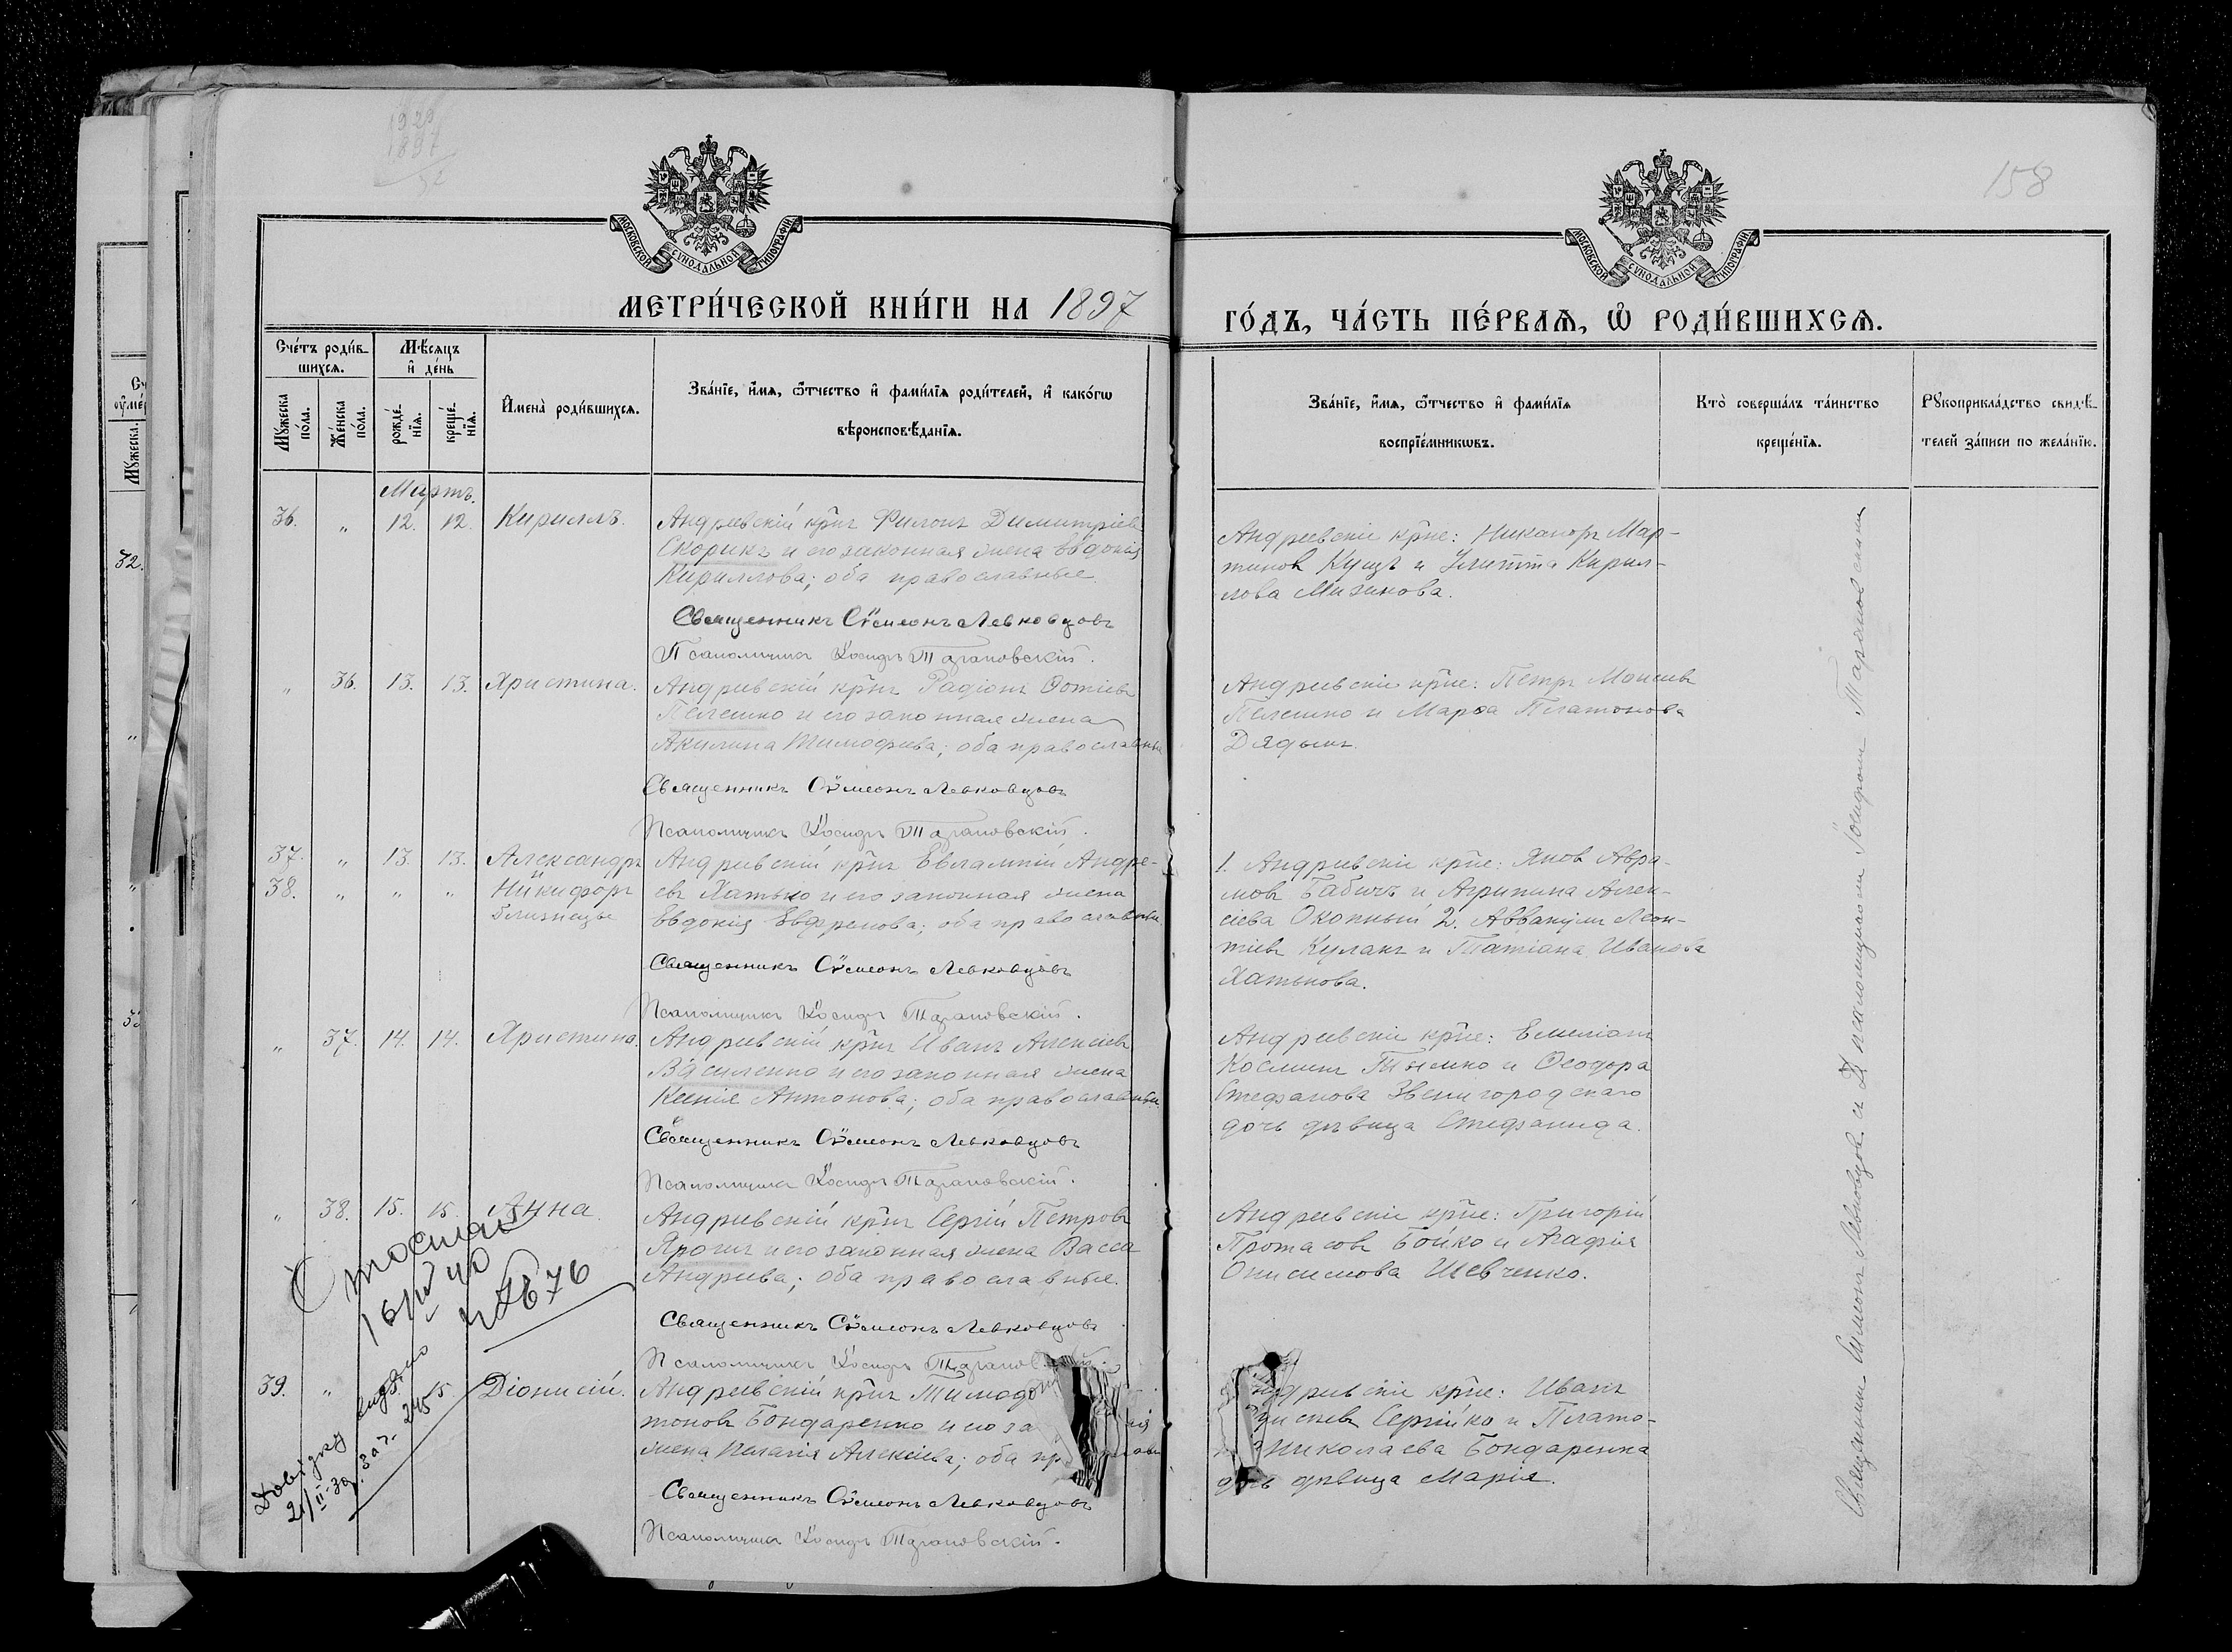 1929
1897
158
МОСКОВСКОЙ СѴНОДАЛЬНОЙ ТИПОГРАФІИ
МОСКОВСКОЙ СѴНОДАЛЬНОЙ ТИПОГРАФІИ
МЕТРИ́ЧЕСКОЙ КНИ́ГИ НА 1897
ГО́ДЪ, ЧА́СТЬ ПЕ́РВАѦ, Ѽ РОДИ́ВШИХСѦ.
Сче́тъ роди́вшихсѧ.
Мꙋжеска по́ла.
Же́нска по́ла.
Мѣ́сѧцъ и҆ де́нь
рожде́нїѧ.
креще́нїѧ.
И҆мена̀ роди́вшихсѧ.
Зва́нїе, и҆́мѧ, ѻ҆́тчество и҆ фами́лїѧ роди́телей, и҆ како́гѡ
вѣроисповѣ́данїѧ.
Зва́нїе, и҆́мѧ, ѻ҆́тчество и҆ фами́лїѧ
воспрїе́мникѡвъ.
Кто̀ соверша́лъ та́инство
креще́нїѧ.
Рꙋкоприкла́дство свидѣ́-
телей за́писи по жела́нїю.
Мартъ.
36. " 12. 12. Кириллъ.
Андреевскій кр̃нъ Филонъ Димитріевъ
Скорикъ и его законная жена Евдокія
Кириллова; оба православные.
Священникъ Сѵмеонъ Левковцовъ
Псаломщикъ Іосифъ Тарановскій.
Андреевскіе кр̃не: Никаноръ Мар-
тиновъ Куцъ и Улитта Кирил-
лова Мизинова.
" 36. 13. 13. Христина.
Андреевскій кр̃нъ Радіонъ Фотіевъ
Пелешко и его законная жена
Акилина Тимофеева; оба православные
Священникъ Сѵмеонъ Левковцовъ
Псаломщикъ Іосифъ Тарановскій.
Андреевскіе кр̃не: Петръ Моисеевъ
Пелешко и Марѳа Платонова
Дядынъ.
37. " 13. 13. Александръ
и
38. " " " Никифоръ
близнецы
Андреевскій кр̃нъ Евлампій Андре-
евъ Хатько и его законная жена
Евдокія Евфремова; оба православные
Священникъ Сѵмеонъ Левковцовъ
Псаломщикъ Іосифъ Тарановскій.
1. Андреевскіе кр̃не: Яковъ Авра-
мовъ Бабичъ и Агрипина Алек-
сіева Окопный 2. Аввакумъ Леон-
тіевъ Кулакъ и Татіана Иванова
Хатькова.
" 37. 14. 14. Христина.
Андреевскій кр̃нъ Иванъ Алексіевъ
Василенко и его законная жена
Ксенія Антонова; оба православные
Священникъ Сѵмеонъ Левковцовъ
Псаломщикъ Іосифъ Тарановскій.
Андреевскіе кр̃не: Емиліанъ
Космин Темко и Ѳеодора
Стефанова Звенигородскаго
дочь дѣвица Стефанида.
" 38. 15. 15. Анна.
Андреевскій кр̃нъ Сергій Петровъ
Ярошъ и его законная жена Васса
Андреева; оба православные.
Священникъ Сѵмеонъ Левковцовъ
Псаломщикъ Іосифъ Тарановскій.
Андреевскіе кр̃не: Григорій
Протасовъ Бойко и Агафія
Онисимова Шевченко.
16/IV 40
39. " 15. Діонисій.
Андреевскій кр̃нъ Тимоф
тоновъ Бондаренко и его за
жена Пелагія Алексіева; оба пр
Священникъ Сѵмеонъ Левковцовъ
Псаломщикъ Іосифъ Тарановскій.
ндреевскіе кр̃не: Иванъ
Сергійко и Плато-
Николаева Бондаренка
дочь дѣвица Марія.
Довідку видано
Священникъ Симеонъ Левковцовъ съ псаломщикомъ Іосифомъ Тарановскимъ
32.